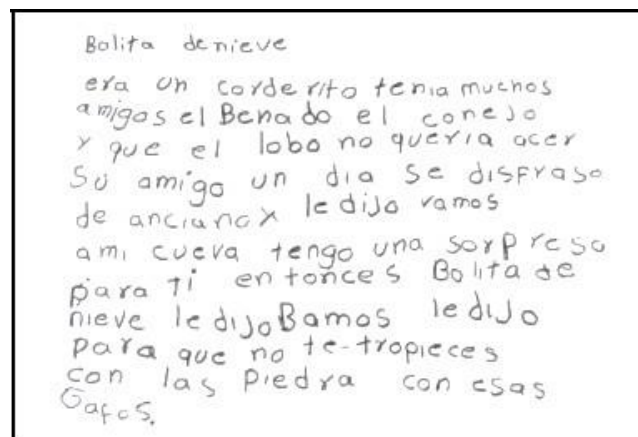 Bolita denieve
era un corderito tenia muchos
amigos el Benado el conejo
y que el lobo no queria acer
Su amigo un dia se disfraso
de anciana y ledijo vamos
ami cueva tengo una sorpresa
para ti entonces Bolita de
nieve ledijo Bamos ledijo
para que no te-tropieces
con las piedra con esas
Gafas.